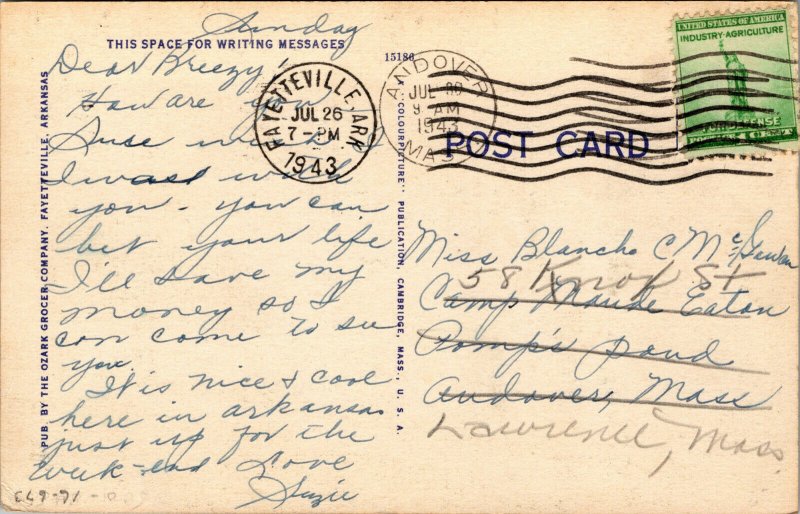 Sunday
THIS SPACE FOR WRITING MESSAGES
Dear Breezy!
How are you
Sure wish
I was with
you - you can
bet your life
I'll save my
money so I
can come to see
you.
It is nice & cool
here in arkansas
just up for the
week-end Love
Suzie
PUB. BY THE OZARK GROCER COMPANY, FAYETTEVILLE, ARKANSAS
15186
"A COLOURPICTURE" PUBLICATION, CAMBRIDGE, MASS., U. S. A.
FAYETTEVILLE, ARK.
JUL 26
7-PM
1943
ANDOVER
JUL
9 AM
1943
MASS
UNITED STATES OF AMERICA
INDUSTRY-AGRICULTURE
FOR DEFENSE
POST CARD
Miss Blanche C Mc
58 Knox St
Camp Maude Eaton
Pomp's pond
Andover, Mass
Lawrence, Mass.